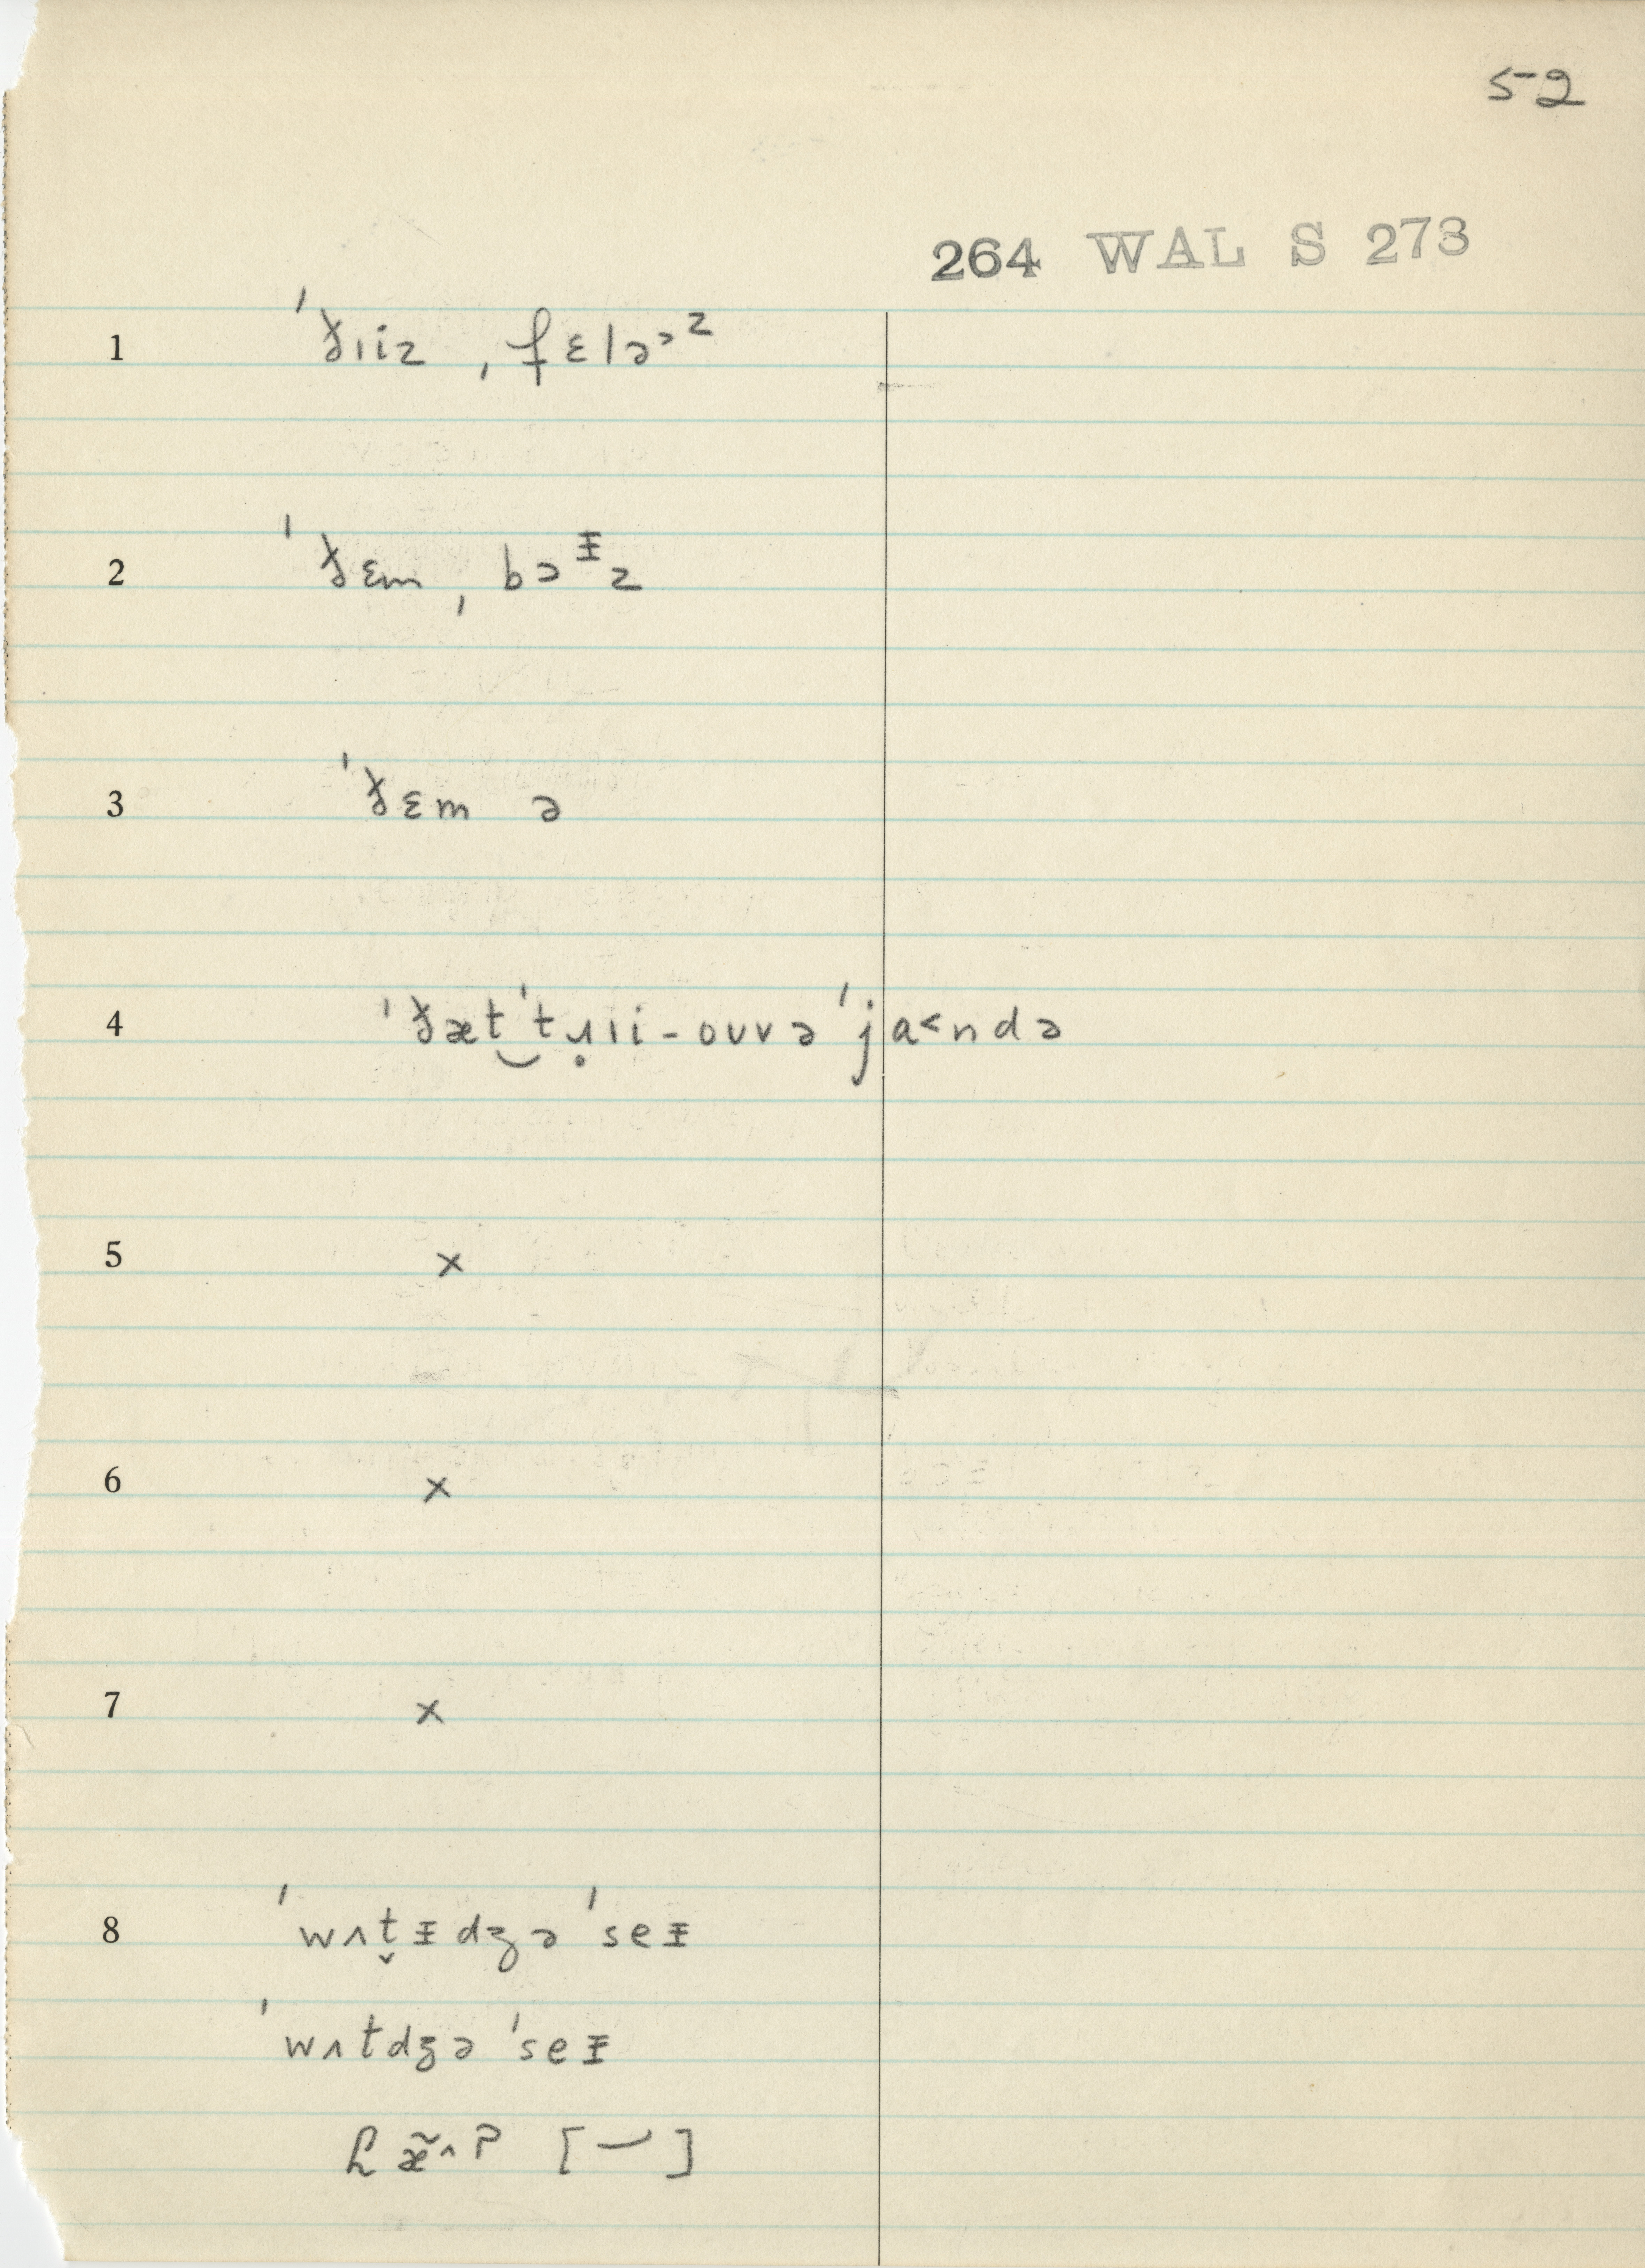 52
264 WAL S 273
1 ˈðɪiz ˌfɛləᵊᶻ
2 ˈðɛm ˌbəᵻz
3 ˈðɛm ə
4 ˈðæt‿ˈtɹ̣ɪi-oʊvəˈja˂ndə
5 x
6 x
7 x
8 ˈwʌt̬ᵻdʒəˈseᵻ
ˈwʌtdʒəˈseᵻ